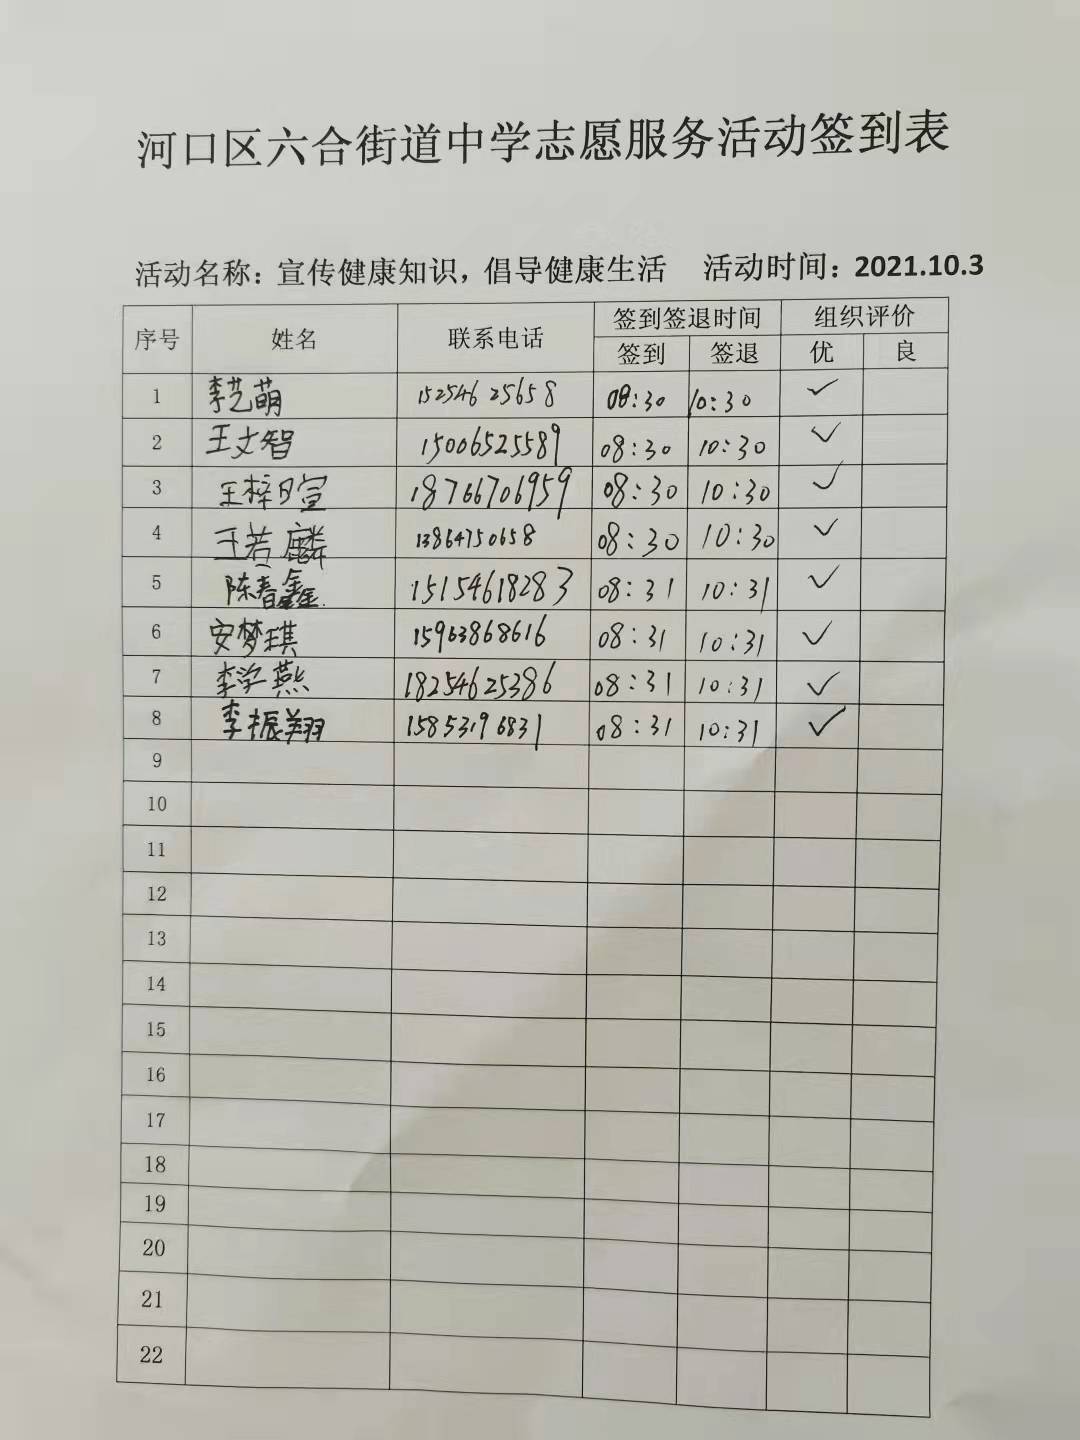 河口区六合街道中学志愿服务活动签到表
活动名称：宣传健康知识，倡导健康生活 活动时间：2021.10.3
序号 姓名 联系电话 签到签退时间 组织评价
签到 签退 优 良
1 李艺萌 15254625658 08:30 10:30 ✓
2 王文智 15006525589 08:30 10:30 ✓
3 王梓日宣 18766706959 08:30 10:30 ✓
4 王若麟 13864750658 08:30 10:30 ✓
5 陈春鑫 15154618283 08:31 10:31 ✓
6 安梦琪 15963868616 08:31 10:31 ✓
7 李学燕 18254625386 08:31 10:31 ✓
8 李振翔 15853196831 08:31 10:31 ✓
9
10
11
12
13
14
15
16
17
18
19
20
21
22